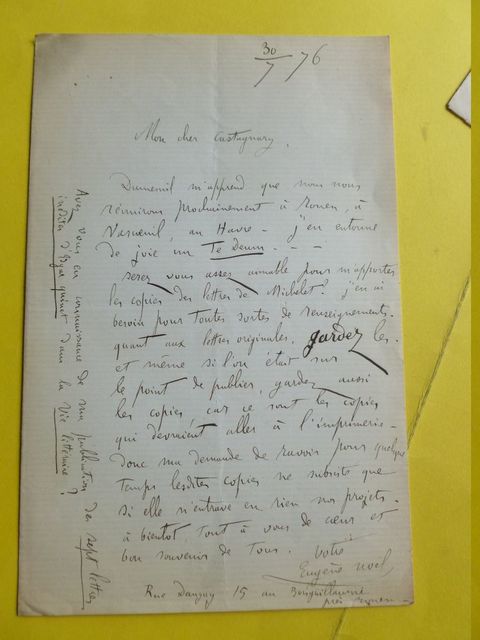 30/7 76
Mon cher Castagnary,
Dumesnil m'apprend que nous nous
réunirons prochainement à Rouen, à
Vascœuil, au Havre – j'en entonne
de joie un Te Deum – – –
serez vous assez aimable pour m'apporter
les copies des lettres de Michelet? j'en ai
besoin pour toutes sortes de renseignements.
quant aux lettres originales, gardez les.
et même si l'on était sur
le point de publier, gardez aussi
les copies car ce sont les copies
qui devraient aller à l'imprimerie –
Donc ma demande de ravoir pour quelque
temps lesdites copies ne subsiste que
si elle n'entrave en rien nos projets –
à bientôt, tout à vous de cœur et
bon souvenir de tous. Votre
Eugène Noel,
Rue 15 au Boisguillaume
près Rouen –
Avez vous eu connaissance de ma publication des sept lettres
inédites d'Edgar quinet dans la Vie littéraire?